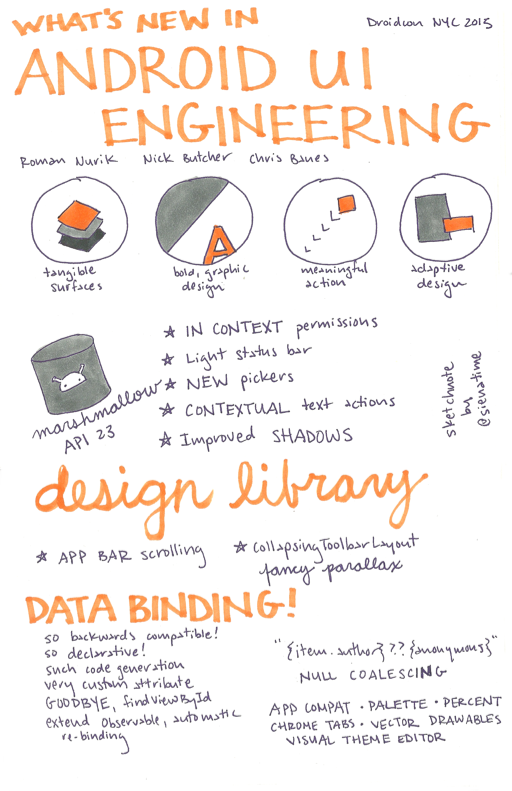 WHAT'S NEW IN
Droidcon NYC 2015
ANDROID UI
ENGINEERING
Roman Nurik Nick Butcher Chris Banes
tangible
surfaces
bold, graphic
design
meaningful
action
adaptive
design
A
marshmallow
API 23
★ IN CONTEXT permissions
★ Light status bar
★ NEW pickers
★ CONTEXTUAL text actions
★ Improved SHADOWS
sketchnote
by
@sienatime
design library
★ APP BAR scrolling
★ CollapsingToolbarLayout
fancy parallax
DATA BINDING!
so backwards compatible!
so declarative!
such code generation
very custom attribute
GOODBYE, findViewById
extend Observable, automatic
re-binding
"{item.author} ?? {anonymous}"
NULL COALESCING
APP COMPAT · PALETTE · PERCENT
CHROME TABS · VECTOR DRAWABLES
VISUAL THEME EDITOR